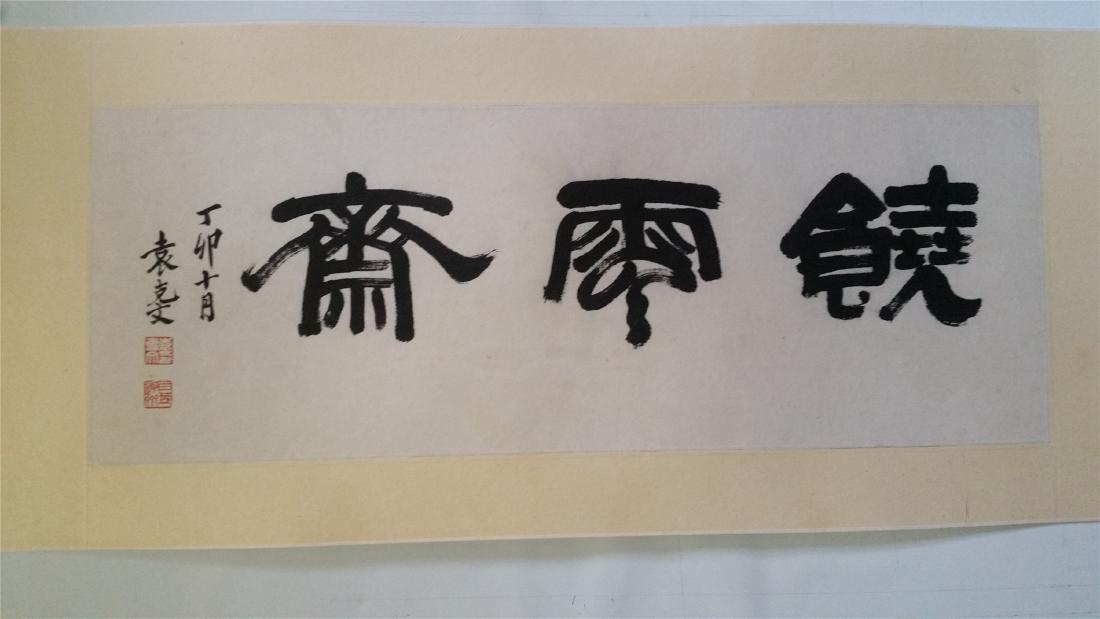 饒雲齋
丁卯十月
袁克文